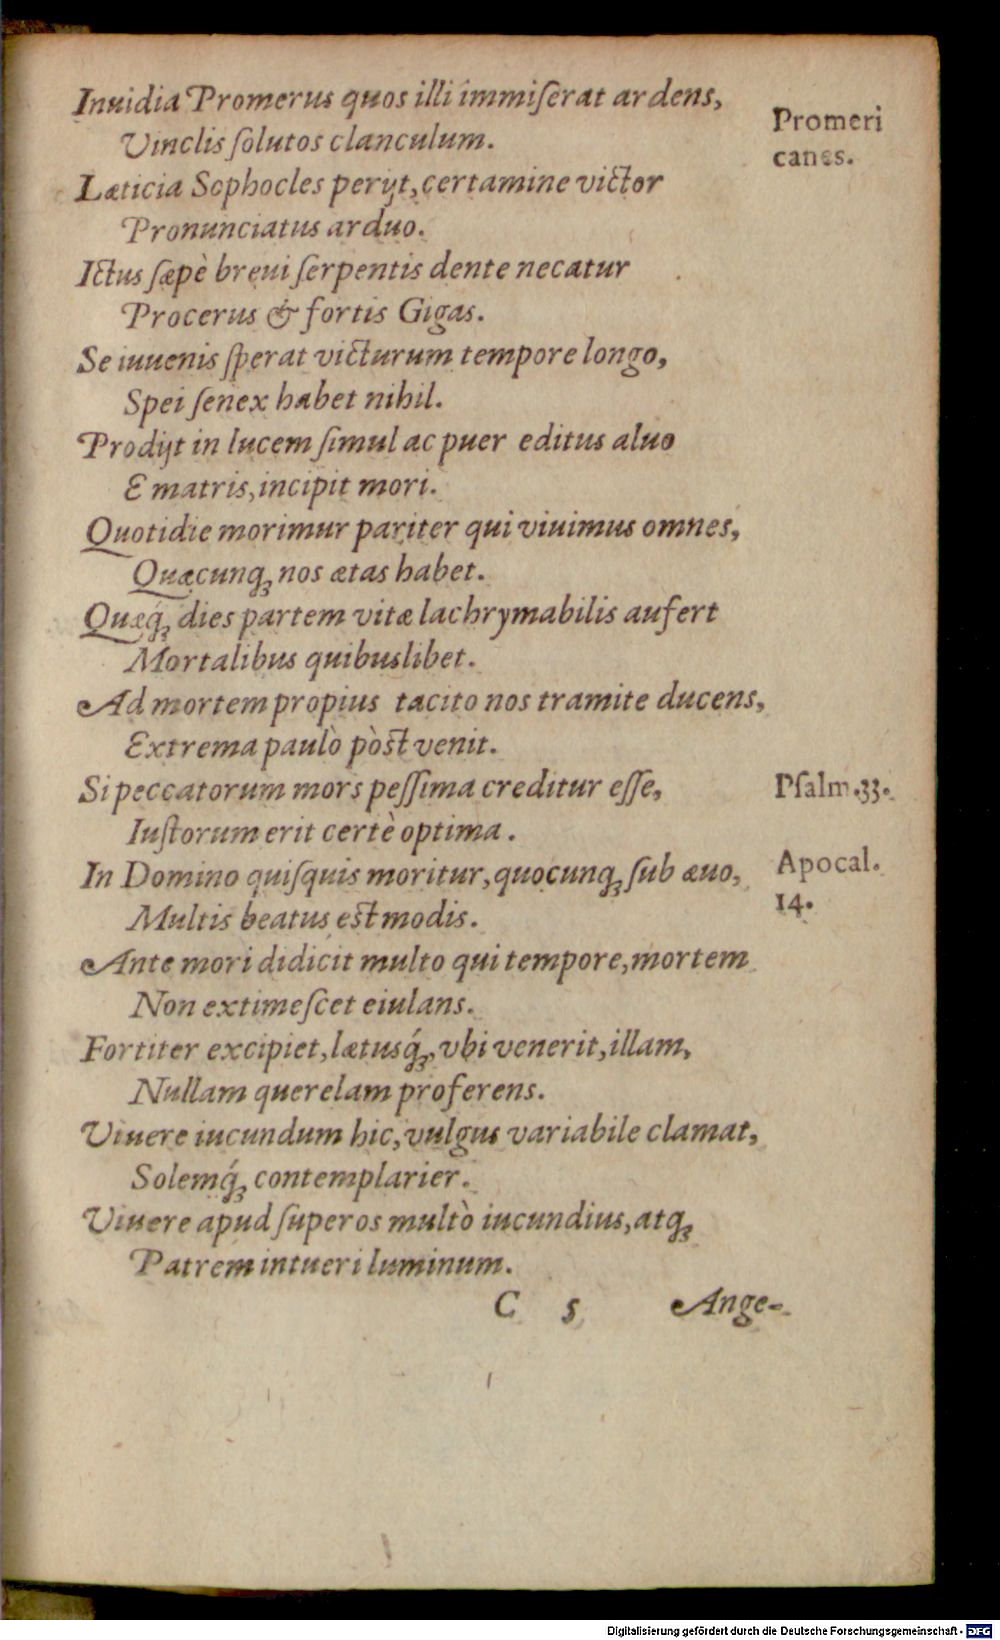 Inuidia Promerus quos illi immiſerat ardens,
Vinclis ſolutos clanculum.
Promeri
canes.
Læticia Sophocles perijt, certamine victor
Pronunciatus arduo.
Ictus ſæpè breui ſerpentis dente necatur
Procerus & fortis Gigas.
Se iuuenis ſperat victurum tempore longo,
Spei ſenex habet nihil.
Prodijt in lucem ſimul ac puer editus aluo
E matris, incipit mori.
Quotidie morimur pariter qui viuimus omnes,
Quæcunq; nos ætas habet.
Quæq́; dies partem vitæ lachrymabilis aufert
Mortalibus quibuslibet.
Ad mortem propius tacito nos tramite ducens,
Extrema paulò pòst venit.
Si peccatorum mors peſſima creditur eſſe,
Psalm.33.
Iuſtorum erit certè optima.
In Domino quiſquis moritur, quocunq; ſub æuo,
Apocal.
14.
Multis beatus est modis.
Ante mori didicit multo qui tempore, mortem
Non extimeſcet eiulans.
Fortiter excipiet, lætusq́;, vbi venerit, illam,
Nullam querelam proferens.
Viuere iucundum hic, vulgus variabile clamat,
Solemq́; contemplarier.
Viuere apud ſuperos multò iucundius, atq;
Patrem intueri luminum.
C 5 Ange-
Digitalisierung gefördert durch die Deutsche Forschungsgemeinschaft - DFG